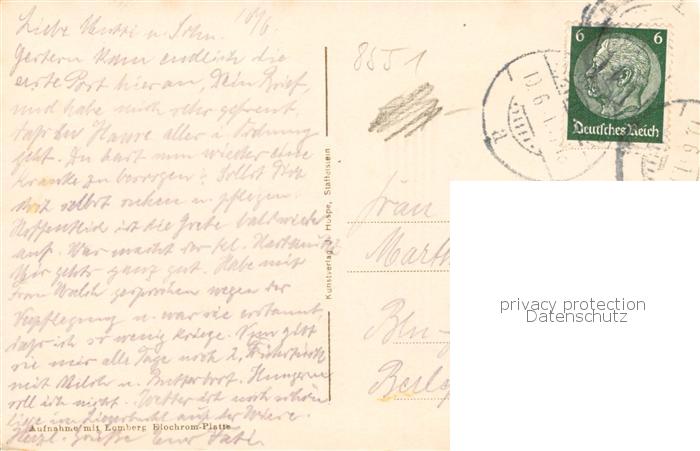 10/6.
Liebe Mutti u. Sohn.
Gestern kam endlich die
erste Post hier an, Dein Brief,
und habe mich sehr gefreut,
daß zu Hause alles i. Ordnung
geht. Du hast nun wieder eine
Kranke zu versorgen? Sollst Dich
doch selbst ruhen u. pflegen.
Hoffentlich ist die Grete bald wieder
auf. Was macht der kl.
Mir gehts ganz gut. Habe mit
Frau Walch gesprochen wegen der
Verpflegung u. war sie erstaunt,
daß ich so wenig kriege. Nun gibt
sie mir alle Tage noch 2. Frühstück
mit Milch u. Butterbrot. Hungern
soll ich nicht. Wetter ist noch schön
liege im Liegestuhl auf der Wiese.
Herzl. Grüße Euer Vati.
Aufnahme mit Lomberg Biochrom-Platte
Kunstverlag Huspe, Staffelstein
8551
6 6
Deutsches Reich
Frau
Marth
Bln-
privacy protection
Datenschutz